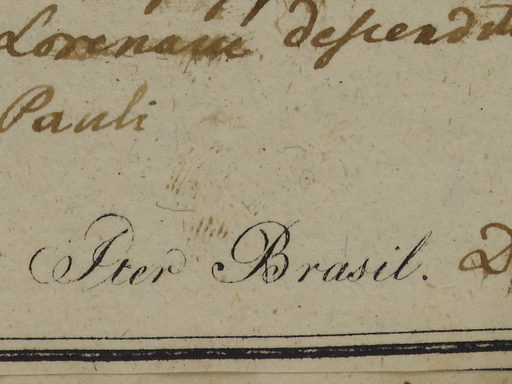 Lorenam descendit
Pauli
Iter Brasil. D